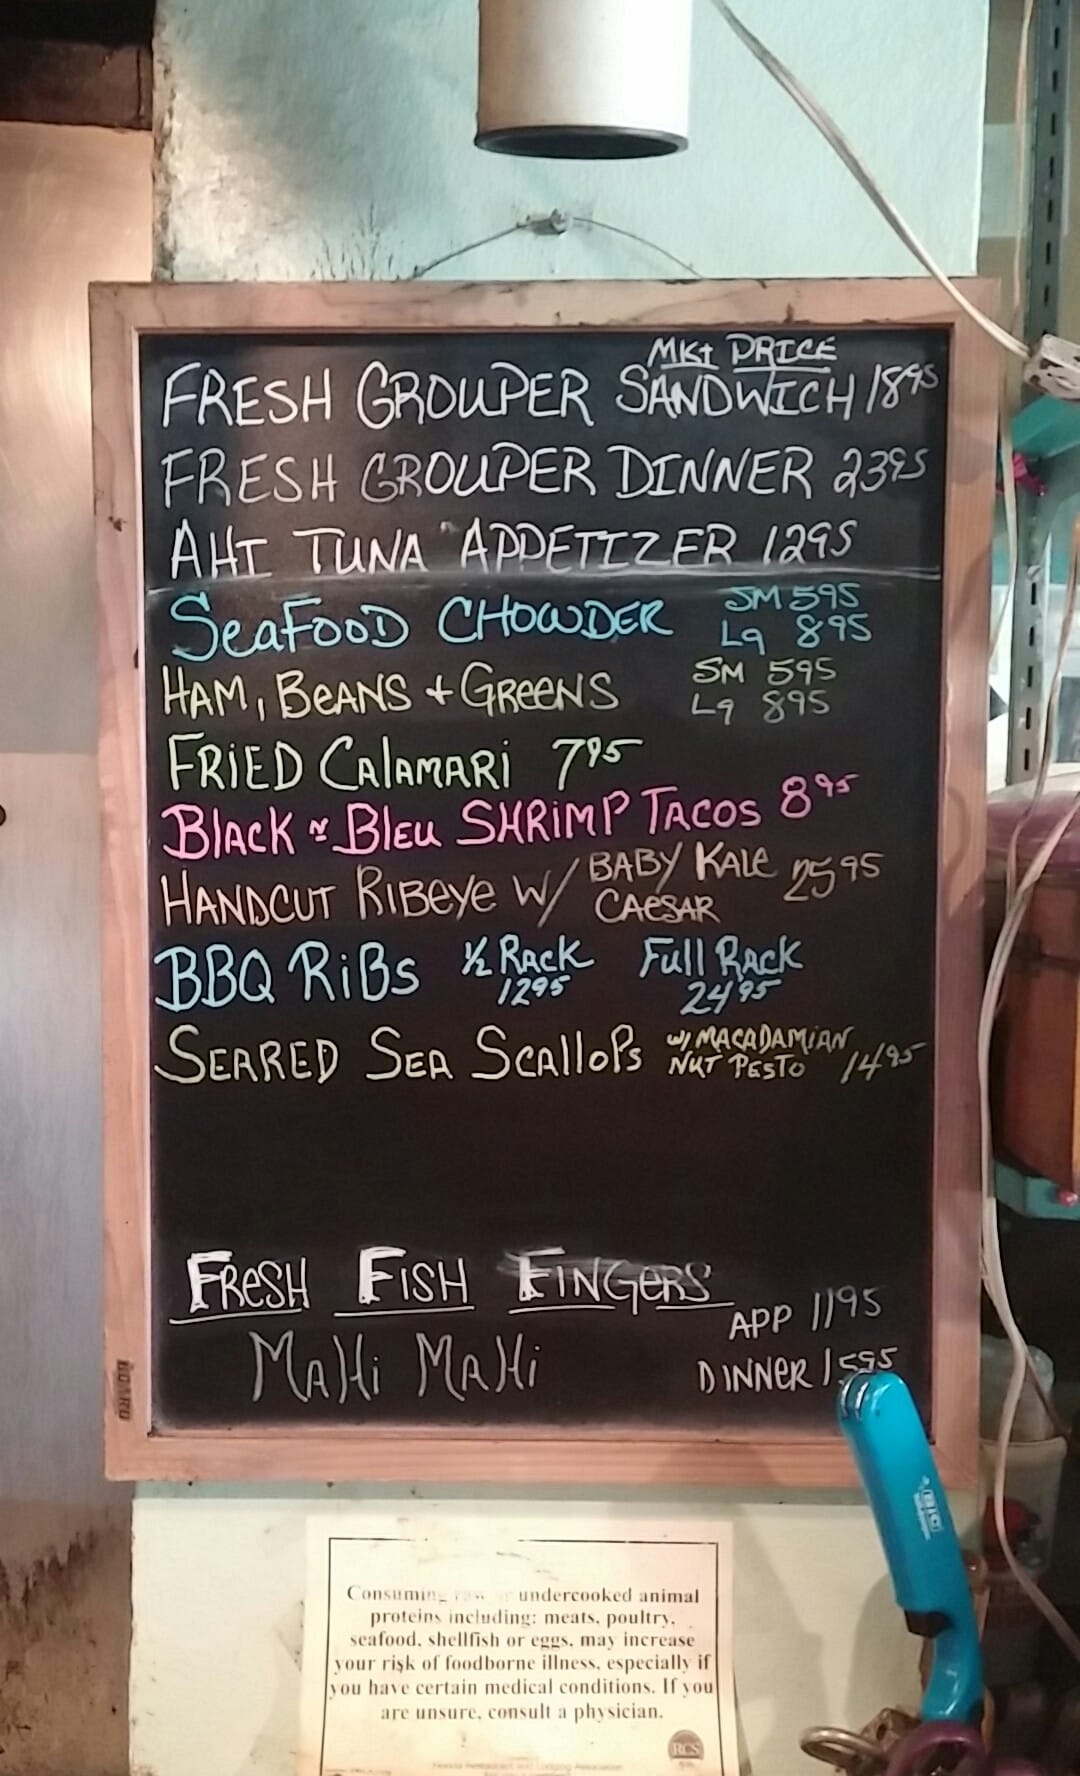 MKt PRICE
FRESH GROUPER SANDWICH 1895
FRESH GROUPER DINNER 2395
AHI TUNA APPETIZER 1295
SeaFOOD CHOWDER SM 595
Lg 895
HAM, BEANS + GReeNS SM 595
Lg 895
FRiED CAlAMARi 795
BlACK N BlEU SHRiMP TACOS 895
HANDCUT RiBeye W/ BABY KAle CAeSAR 2595
BBQ RiBs ½ RACK 1295 Full RACK 2495
SEARED SEA SCAlloPs w/ MACADAMiAN NUT PESTO 1495
FReSH FISH FINGeRS
APP 1195
MaHi MaHi DINNER 1595
BOARD
BIC
Consuming raw or undercooked animal
proteins including: meats, poultry,
seafood, shellfish or eggs, may increase
your risk of foodborne illness, especially if
you have certain medical conditions. If you
are unsure, consult a physician.
RCS
Florida Restaurant and Lodging Association